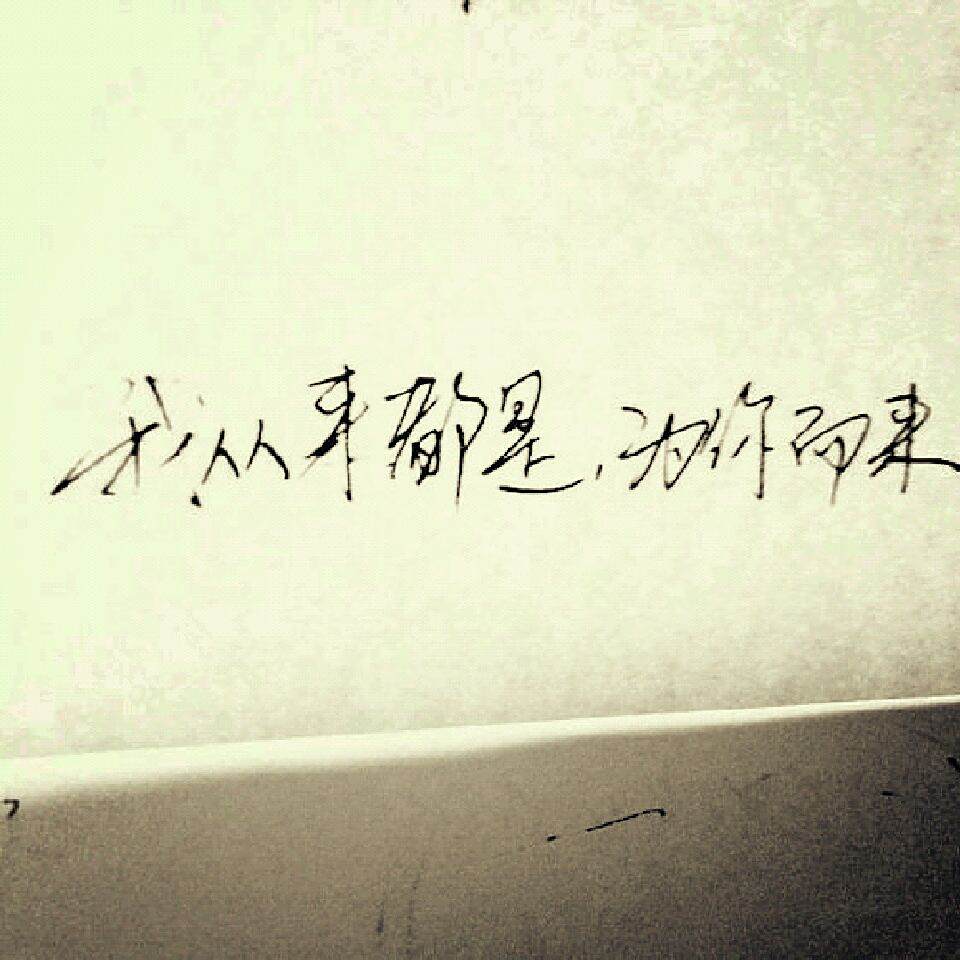 我从来都是,为你而来